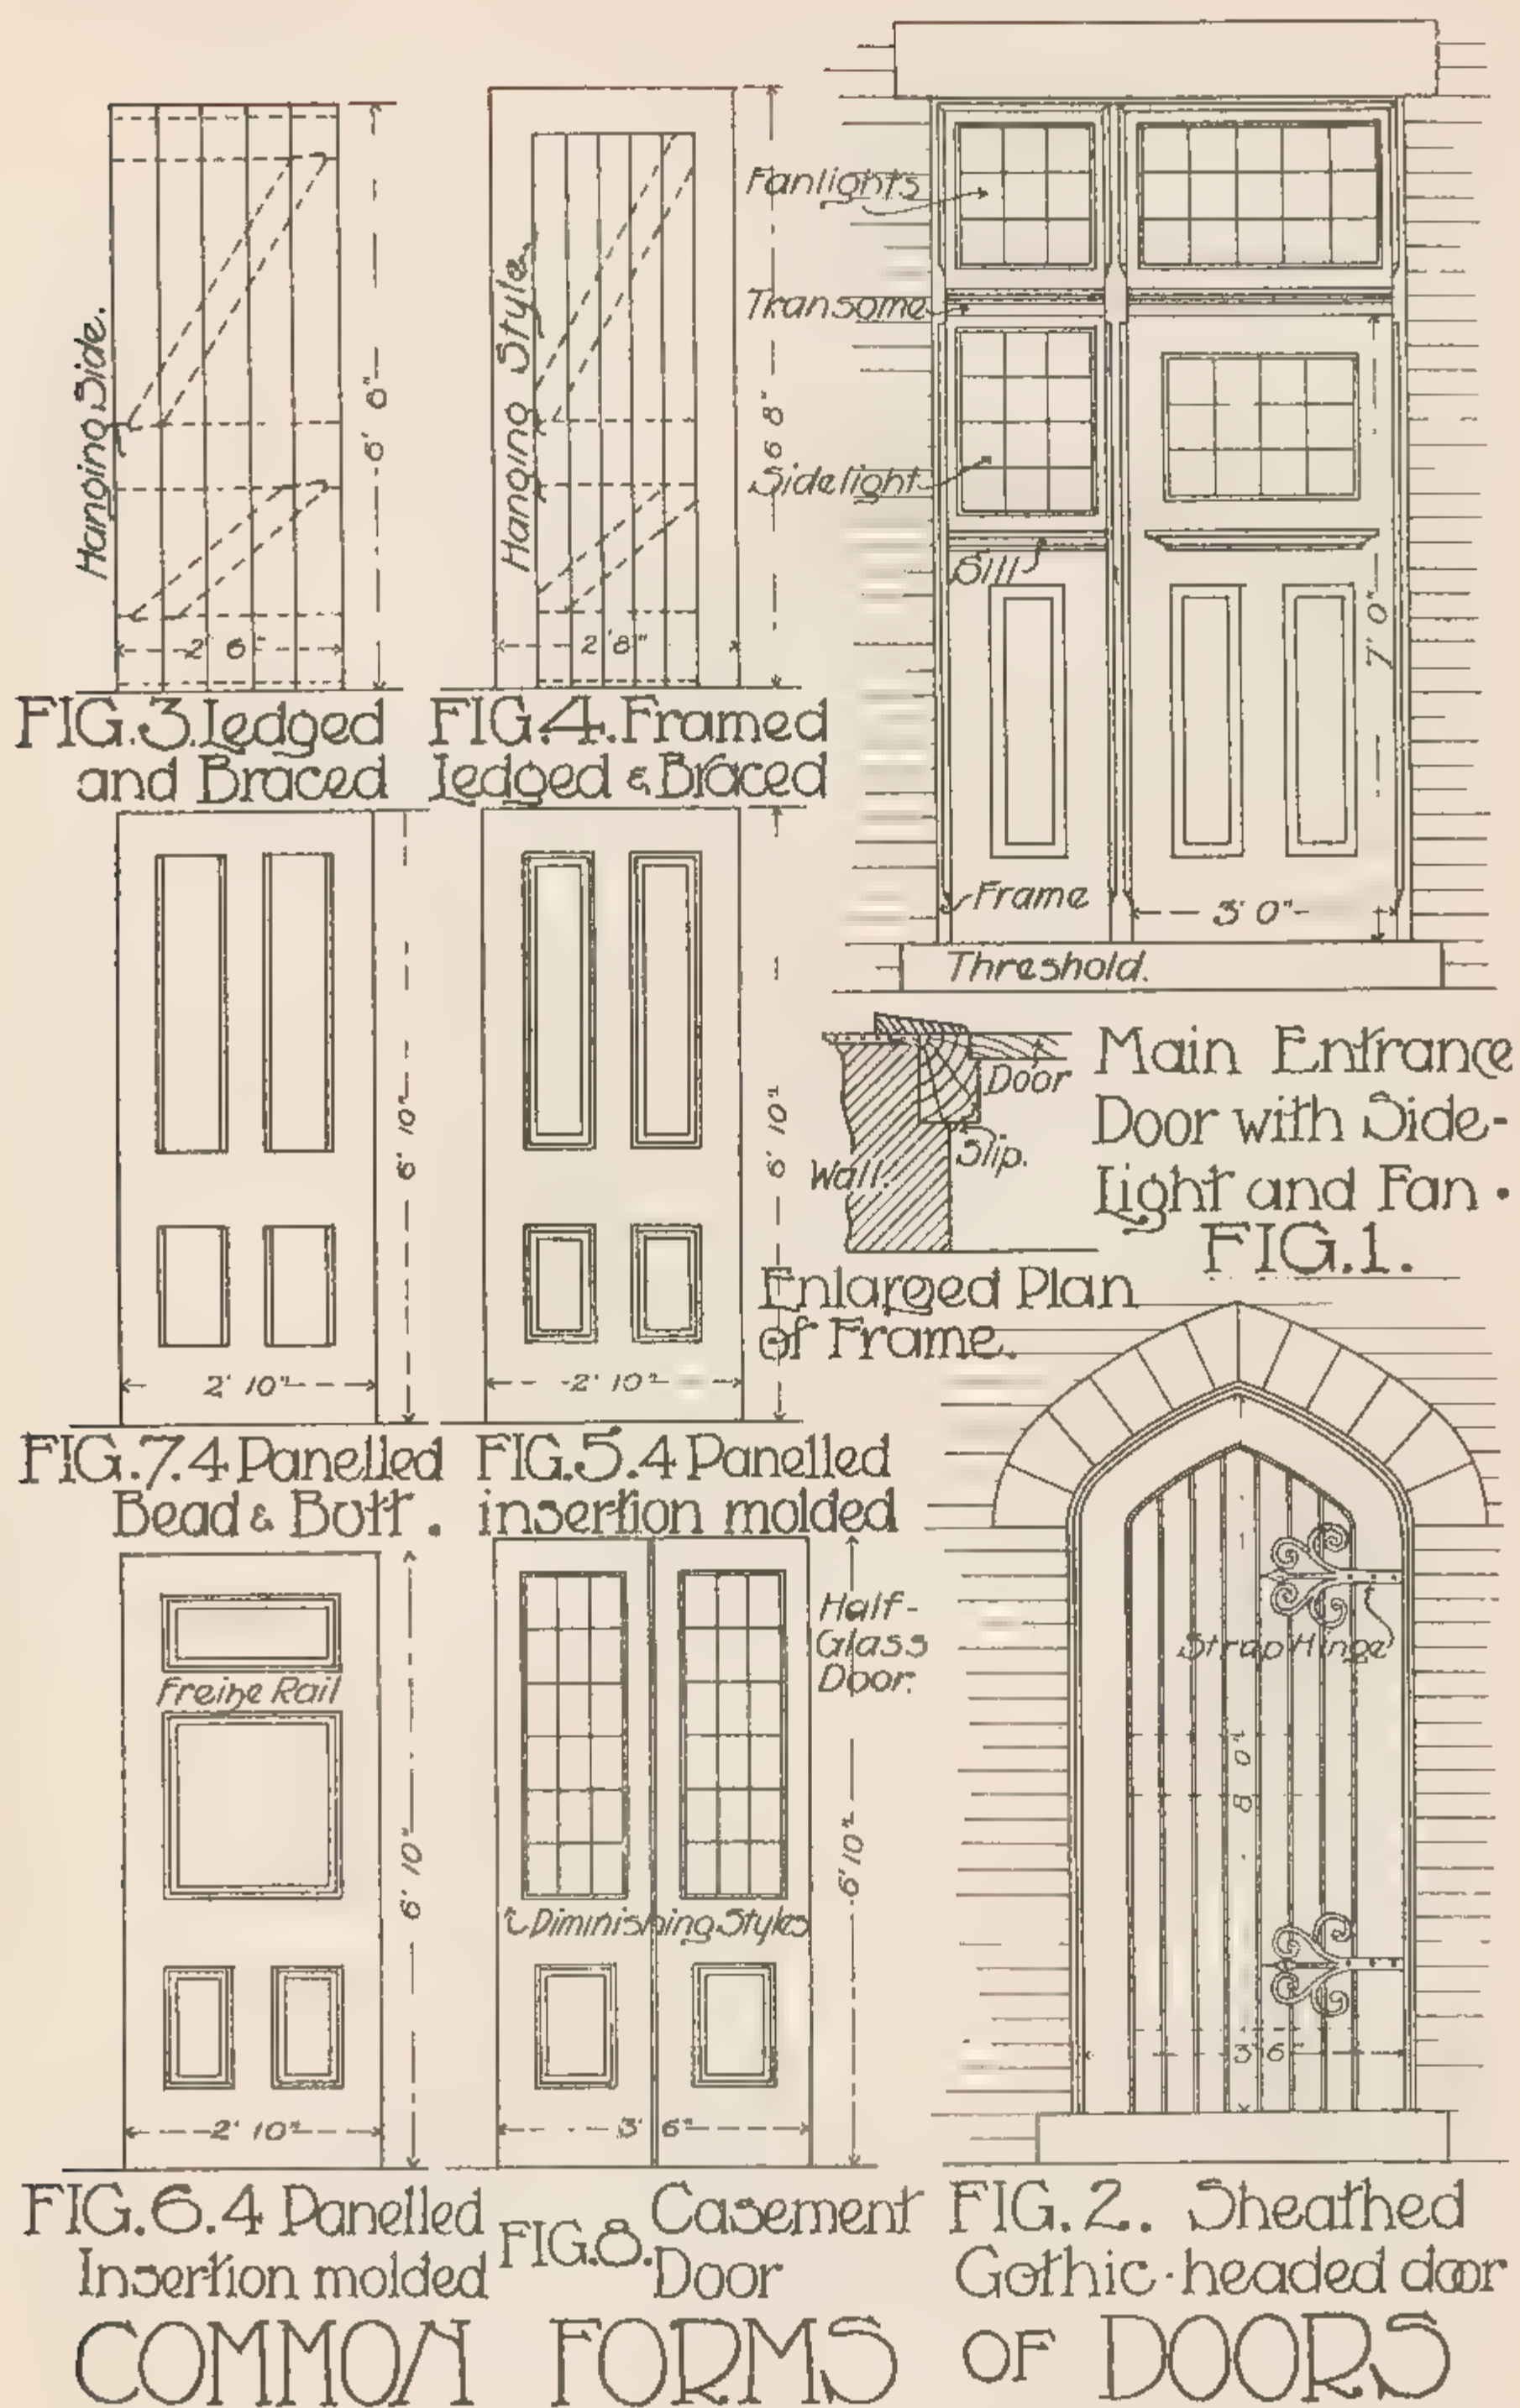 Hanging Side.
6' 6"
2' 6"
FIG.3 Ledged
and Braced
Hanging Style
6' 8"
2' 8"
FIG.4. Framed
Ledged & Braced
Fanlights
Transome
Sidelight
Sill
7' 0"
Frame
3' 0"
Threshold.
Main Entrance
Door with Side-
Light and Fan.
FIG.1.
Door
Slip.
Wall.
Enlarged Plan
of Frame.
6' 10"
2' 10"
FIG.7. 4 Panelled
Bead & Butt.
6' 10"
2' 10"
FIG.5. 4 Panelled
insertion molded
Freize Rail
6' 10"
2' 10"
FIG.6. 4 Panelled
Insertion molded
Half-
Glass
Door.
Diminishing Styles
6' 10"
3' 6"
FIG.8. Casement
Door
Strap Hinge
8' 0"
3' 6"
FIG.2. Sheathed
Gothic-headed door
COMMON FORMS OF DOORS